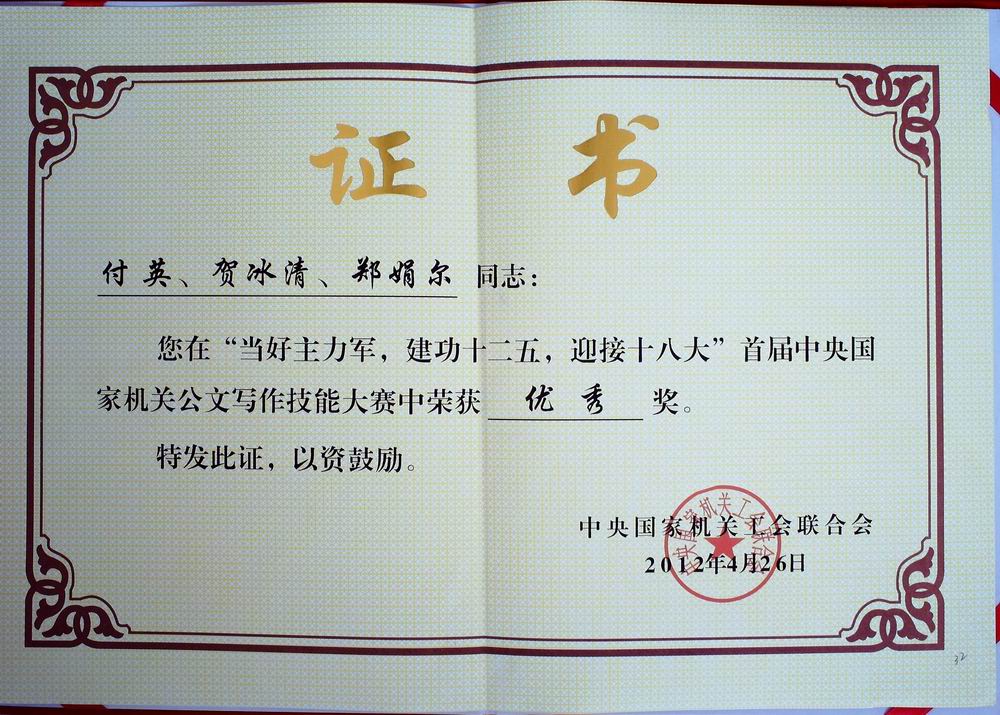 证书
付英、贺冰清、郑娟尔 同志：
您在“当好主力军，建功十二五，迎接十八大”首届中央国
家机关公文写作技能大赛中荣获 优秀 奖。
特发此证，以资鼓励。
中央国家机关工会联合会
2012年4月26日
中央国家机关工会联合会
32